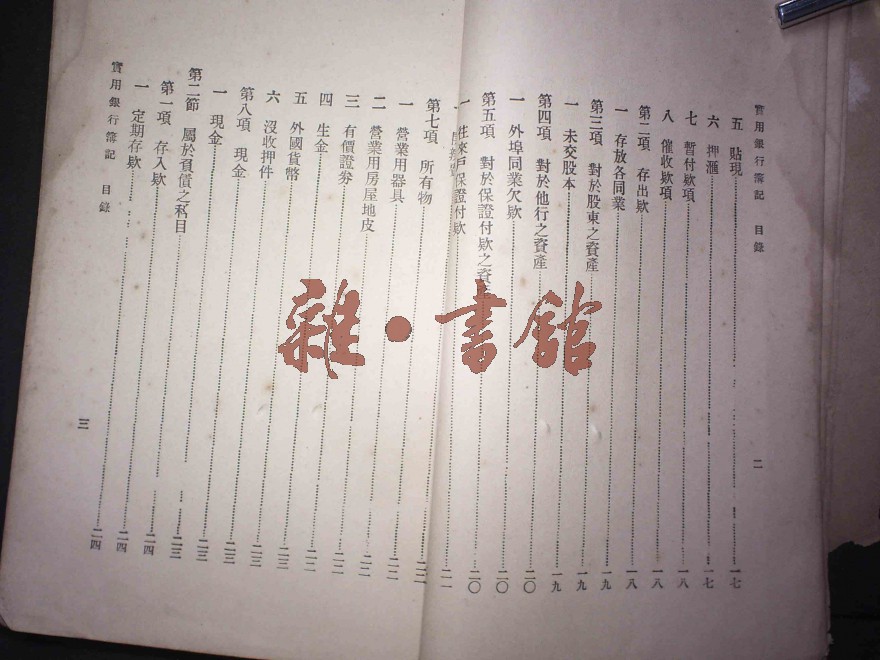 實用銀行簿記 目錄
二
五 貼現 一七
六 押滙 一七
七 暫付欵項 一八
八 催收欵項 一八
第二項 存出欵 一八
一 存放各同業 一九
第三項 對於股東之資產 一九
一 未交股本 一九
第四項 對於他行之資產 二〇
一 外埠同業欠欵 二〇
第五項 對於保證付欵之資產 二〇
一 往來戶保證付欵 二一
第七項 所有物 二二
一 營業用器具 二二
二 營業用房屋地皮 二二
三 有價證劵 二二
四 生金 二三
五 外國貨幣 二三
六 沒收押件 二三
第八項 現金 二三
一 現金 二三
第二節 屬於負債之科目 二四
第一項 存入欵 二四
一 定期存欵 二四
實用銀行簿記 目錄
三
雜・書館